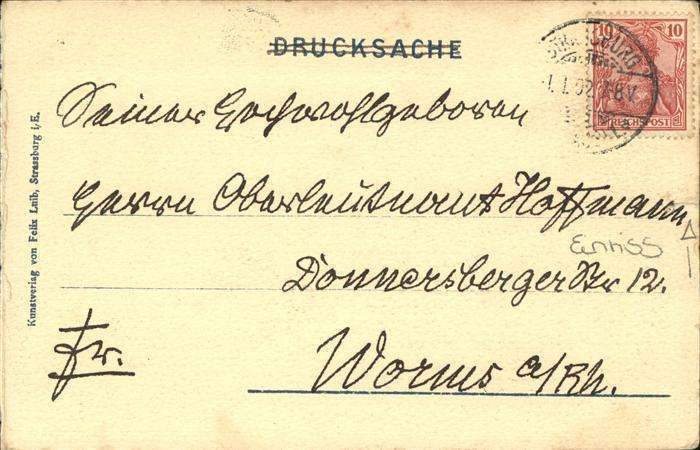 DRUCKSACHE
10 10
REICHSPOST
Seiner Hochwohlgeboren
Herrn Oberleutnant Hoffmann
Einriss
Donnersberger Str 12.
Fr.
Worms a/Rh.
Kunstverlag von Felix Luib, Strassburg i/E.